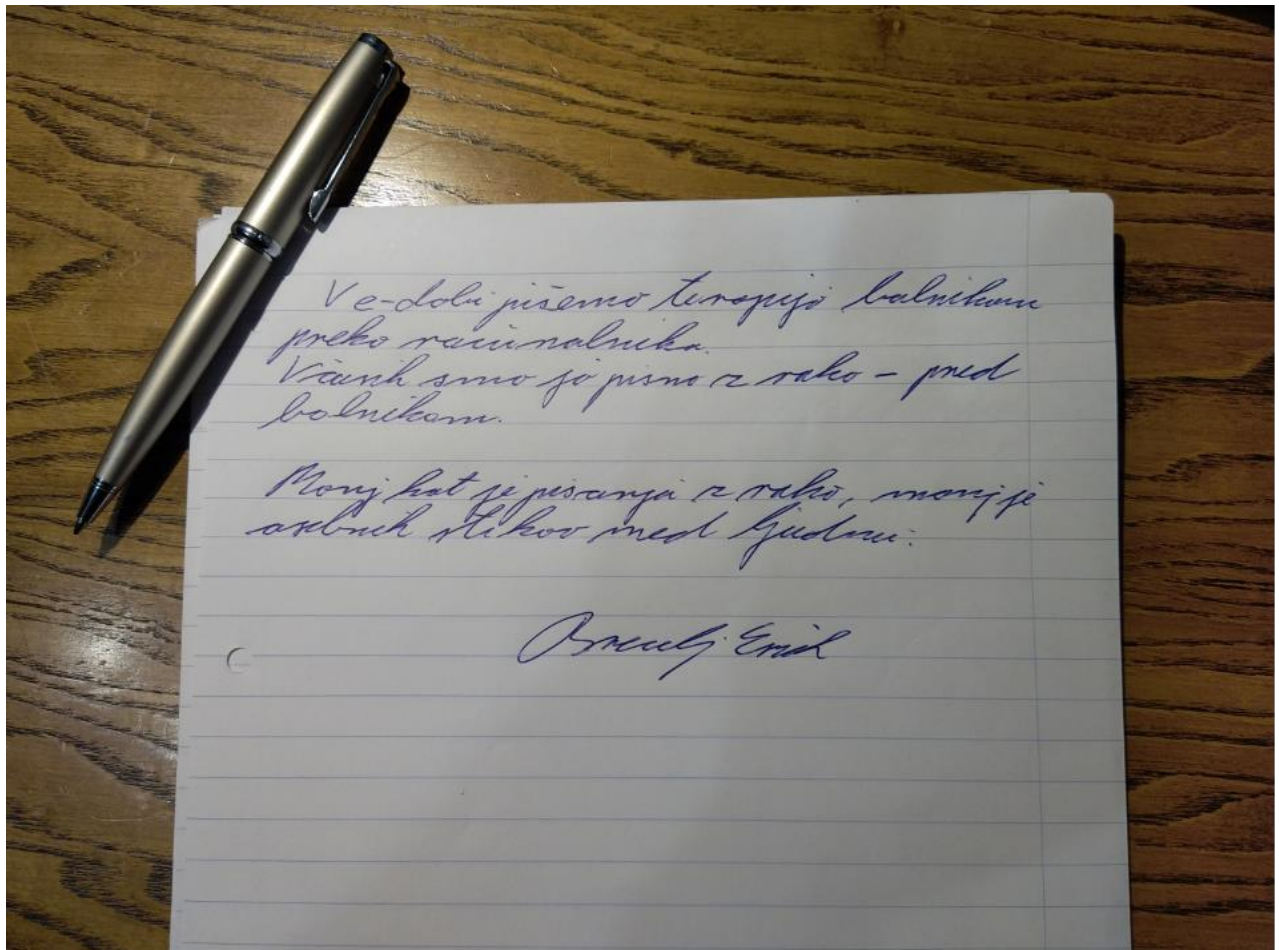 V e-dobi pišemo terapijo bolnikom
preko računalnika.
Včasih smo jo pisno z roko – pred
bolnikom.
Manj kot je pisanja z roko, manj je
osebnih stikov med ljudmi.
Erih